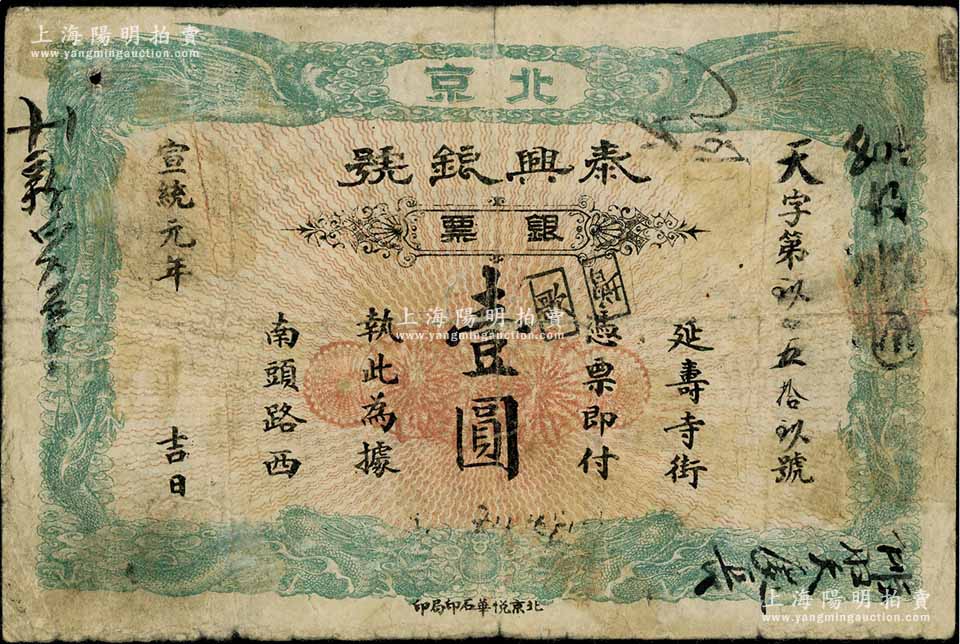 上海陽明拍賣
www.yangmingauction.com
上海陽明拍賣
www.yangmingauction.com
北京
泰興銀號
銀票
天字第玖百五拾玖號
延壽寺街
憑票即付
壹圓
執此為據
南頭路西
宣統元年
吉日
上海陽明拍賣
www.yangmingauction.com
北京悅華石印局印
上海陽明拍賣
www.yangmingauction.com